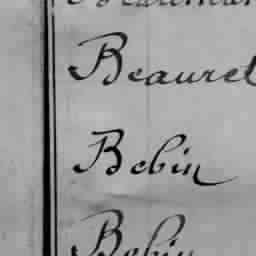 Beauret
Bebin
Bebin